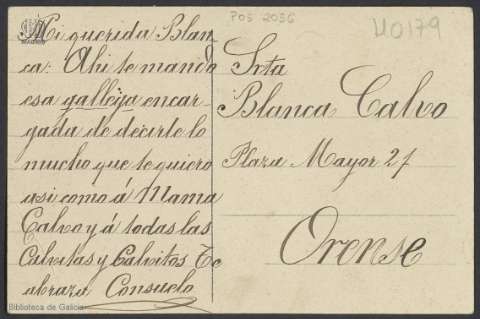 POS 2036
U0179
MADRID
Mi querida Blan
ca: Ahi te mando
esa gallega encar-
gada de decirte lo
mucho que te quiero
asi como á Mama
Calvo y á todas las
Calvitas y Calvitos Te
abraza Consuelo
Srta
Blanca Calvo
Plaza Mayor 27
Orense
Biblioteca de Galicia